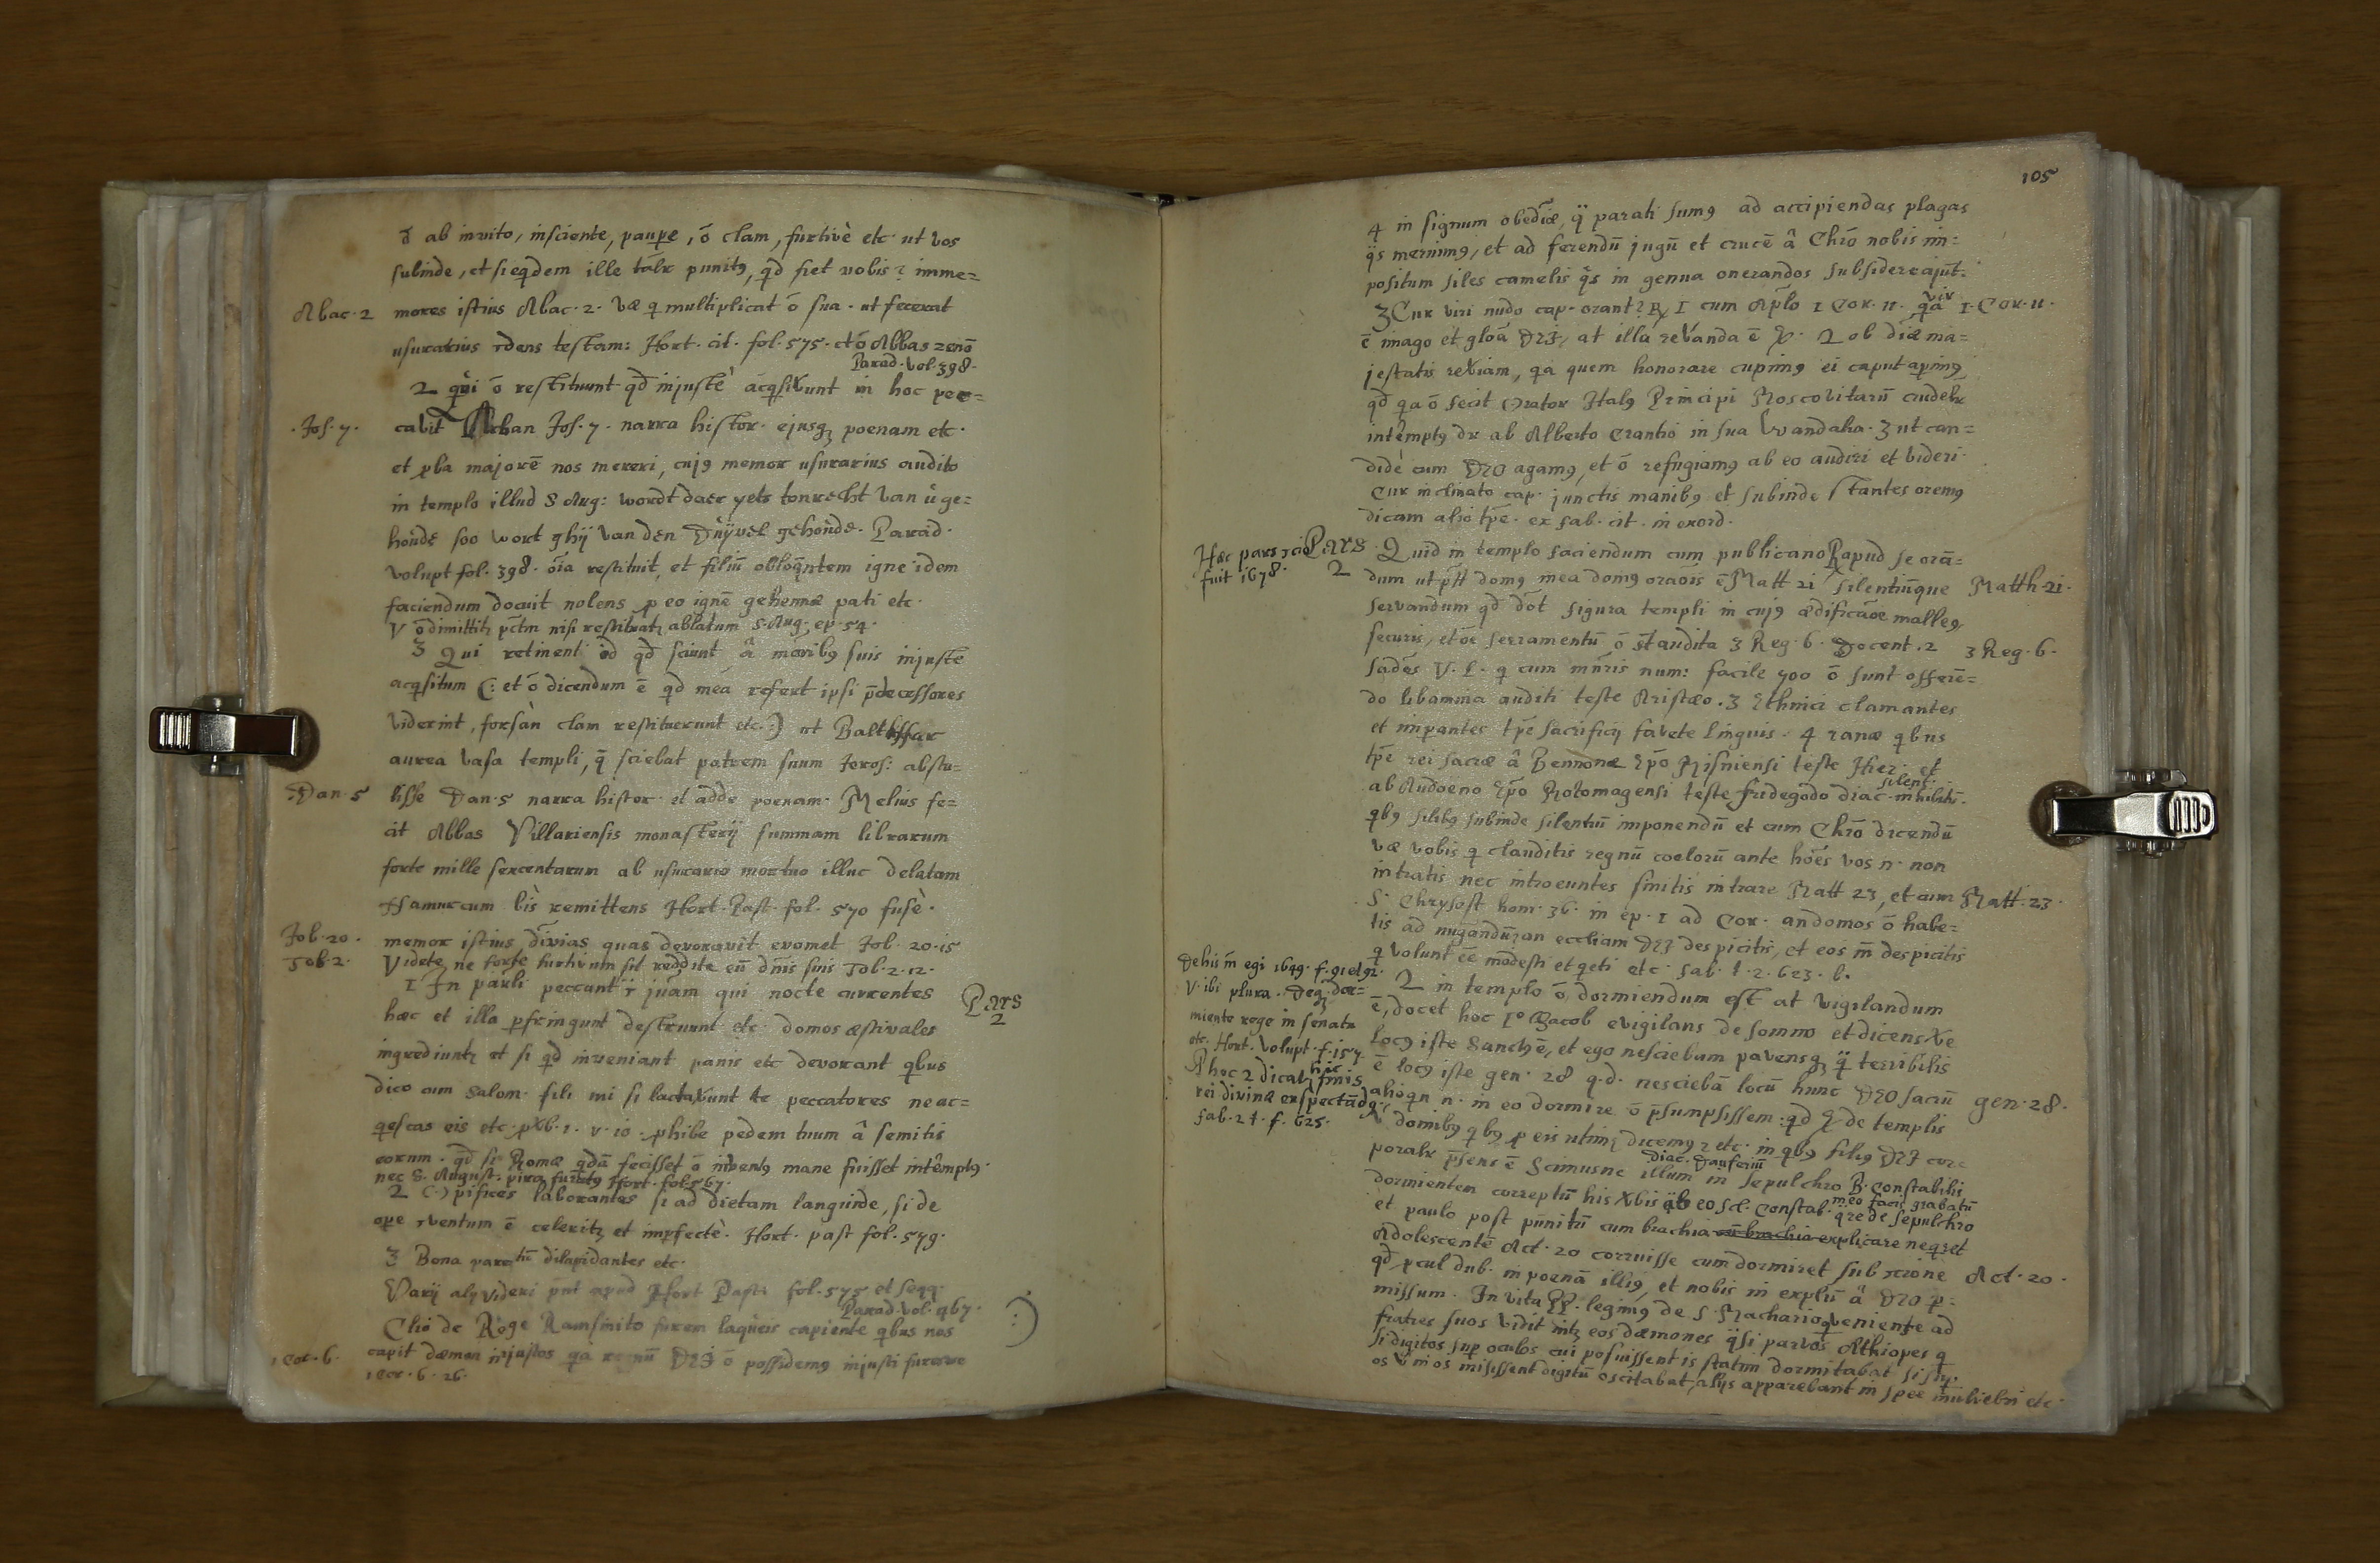 ō ab invito, insciente, paupe, ō clam, furtivè etc ut vos
subinde, et siqdem ille talr punitꝰ, qd fiet vobis? imme=
Abac. 2
mores istius Abac. 2. Væ q multiplicat ō sua. ut fecerat
usurarius testam: Hort. cit. fol. 575. et ō Abbas zenō
Parad. vol. 398.
2 qui ō restituunt qd injustè acqsiverunt in hoc pec=
Jos. 7.
cavit Achan Jos. 7. narra histor. ejusq poenam etc.
et pba majorē nos mereri, cujꝰ memor usurarius audito
in templo illud S Aug: wordt daer yets tonrecht van u ge=
houde soo wort ghij van den Duijvel gehoude. Parad.
volupt fol. 398. oīa restituit, et filiū obloqntem igne idem
faciendum docuit nolens p eo ignē gehennæ pati etc.
V ō dimittitr pctm nisi restituatr ablatum S. Aug. ep. 54.
3 Qui retinent id qd sciunt â majoribꝰ suis injuste
acqsitum (: et ō dicendum ē qd mea refert ipsi pdecessores
viderint, forsàn clam restituerunt etc.) ut Baltassar
aurea vasa templi, q sciebat patrem suum Jeros: abstu=
Dan. 5
lisse Dan. 5 narra histor. et adde poenam. Melius fe=
cit Abbas Villariensis monasterij summam librarum
forte mille sexcentarum ab usurario mortuo illuc delatam
Namurcum bis remittens Hort. Past. fol. 570 fusè.
Job. 20.
memor istius divias quas devoravit evomet Job. 20. 15
Tob. 2.
Videte ne forte furtivum sit reddite eū dnis suis Tob. 2. 12.
1 In parvli peccant qui nocte currentes
Pars
2
hæc et illa pfringunt destruunt etc. domos æstivales
ingrediuntr et si qd inveniant panis etc devorant qbus
dico cum Salom. fili mi si lactaverunt te peccatores ne ac=
qescas eis etc. pvb. 1. v. 10. phibe pedem tuum â semitis
eorum. qd si Romæ qdā fecisset ō inventꝰ mane fuisset intemptꝰ.
nec S. August. pira furatꝰ Hort. fol. 567.
2 Opifices laborantes si ad dietam languide, si de
ope ventum ē celeritr et impfectè. Hort. past fol. 579.
3 Bona parētū dilapidantes etc.
Varij alij videri pnt apud Hort Past. fol. 575 et seqq.
Parad. vol. 467.
Clio de Rege Ramsinito furem laqueis capiente qbus nos
1 Cor. 6.
capit dæmon injustos qa regnū DEI ō possidemꝰ injusti furesve
1 Cor. 6. 26.
105
4 in signum obediæ, q parati sumꝰ ad accipiendas plagas
qs meruimꝰ, et ad ferendū jugū et crucē â Chrō nobis im=
positum siles camelis qs in genua onerandos subsidere ajūt.
3 Cur viri nudo cap. orant? R 1 cum Aplo 1 Cor. 11. qa vir
1. Cor. 11.
ē imago et gloā DEI, at illa velanda ē. 2 ob diæ ma=
jestatis reviam, qa quem honorare cupimꝰ ei caput apimꝰ
qd qa ō fecit Orator Italꝰ Principi Moscovitarū crudelr
intemptꝰ dr ab Alberto Crantio in sua Wandalia. 3 ut can=
didè cum DEO agamꝰ, et ō refugiamꝰ ab eo audiri et videri.
Cur inclinato cap. junctis manibꝰ et subinde stantes oremꝰ
dicam alio tpe. ex fab. cit. in exord.
Hæc pars
fuit 1678.
Pars
2
Quid in templo faciendum cum publicano R apud se orā=
dum ut pstt domꝰ mea domꝰ oraōis ē Matt 21 silentiūque
Matth. 21.
servandum qd dōt figura templi in cujꝰ ædificaōe malleꝰ
securis, et oē ferramentū ō st audita 3 Reg. 6. Docent. 2
3 Reg. 6.
sades V. L. q cum mnris num: facile 700 ō sunt offerē=
do libamina auditi teste Aristæo. 3 Ethnici clamantes
et impantes tpe sacrificij favete linguis. 4 ranæ qbus
tpe rei sacræ â Bennone Epo Misniensi teste Hier. et
silent.
ab Audoeno Epo Rotomagensi teste Fridegodo diac. inhibitū.
qbꝰ silibꝰ subinde silentiū imponendū et cum Chrō dicendū
væ vobis q clauditis regnū coelorū ante hoēs vos n. non
intratis nec introeuntes sinitis intrare Matt 23, et cum
Matt. 23.
S. Chrysost hom. 36. in ep. 1 ad Cor. an domos ō habe=
tis ad nugandū, an eccliam DEI despicitis, et eos m despicitis
q volunt ēē modesti et qeti etc. fab. t. 2. 623. b.
De his m egi 1649. f. 91 et 92.
V. ibi plura. Deq dor=
miente rege in senatu
etc. Hort. volupt. f. 157
P hoc 2 dicatr hic finis
rei divinæ exspectādꝰ
fab. 2 t. f. 625.
2 in templo ō dormiendum est at vigilandum
ē, docet hoc 1º Jacob evigilans de somno et dicens Ve
locꝰ iste Sanctꝰ ē, et ego nesciebam pavensq q terribilis
ē locꝰ iste gen. 28 q. d. nesciebā locū hunc DEO sacrū
gen. 28.
alioqn n. in eo dormire ō psumpsissem: qd de templis
domibꝰ qbꝰ p eis utimr dicemꝰ etc. in qbꝰ filiꝰ DEI cor=
poralr psens ē Scimusne illum in sepulchro B. Constabilis
diac. Dauferiū
dormientem correptū his vbis ab eo scl. Constab. qre de sepulchro
meo facis grabatū
et paulo post punitū cum brachia explicare neqret
Adolescentē Act. 20 corruisse cum dormiret sub ōcione
Act. 20.
qd pcul dub. in poenā illiꝰ, et nobis in explū â DEO p=
missum. In vita PP. legimꝰ de S. Machario q veniente ad
fratres suos vidit intr eos dæmones qsi parvos Æthiopes q
si digitos sup oculos cui posuissent is statim dormitabat
os v in os misissent digitū oscitabat, alijs apparebant in spee muliebri etc.